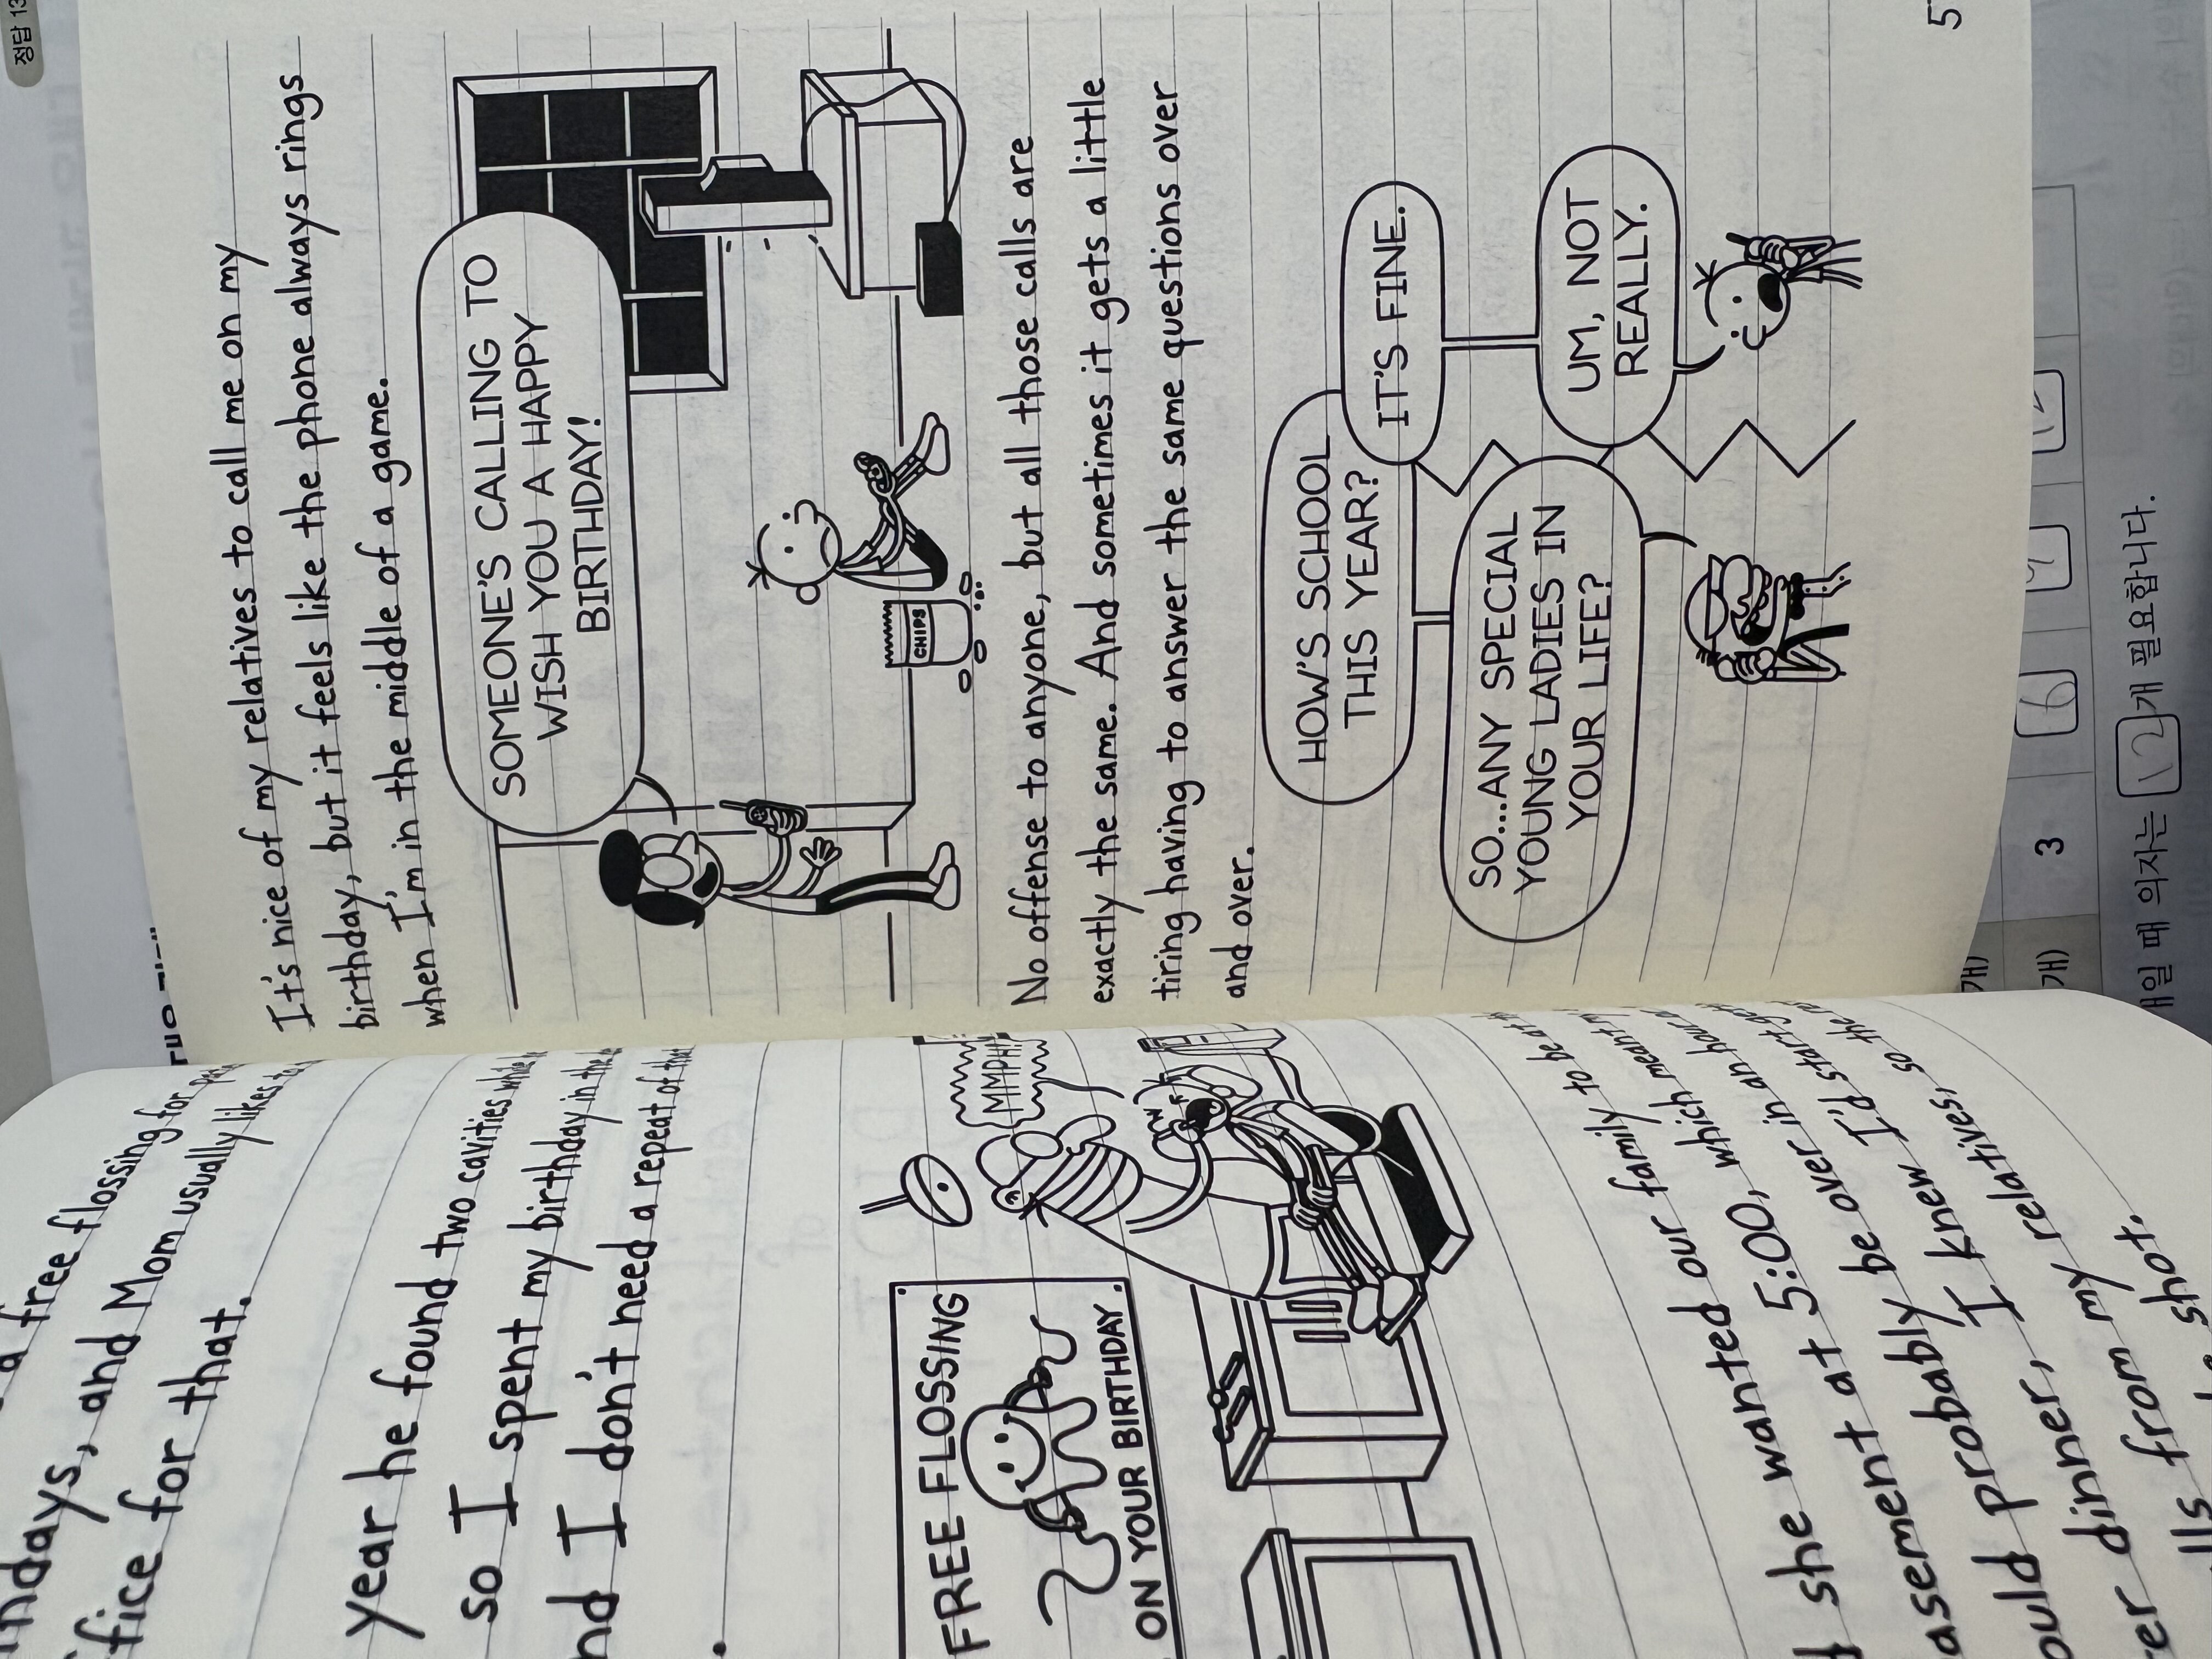 a free flossing for
ndays, and Mom usually likes to
fice for that.
year he found two cavities while
so I spent my birthday in the
nd I don't need a repeat of that
.
FREE FLOSSING
ON YOUR BIRTHDAY
MMPH!
she wanted our family to be at
asement at 5:00, which meant
ould probably be over in an hour
er dinner, I knew I'd start
lls from my relatives, so the
shot.
It's nice of my relatives to call me on my
birthday, but it feels like the phone always rings
when I'm in the middle of a game.
SOMEONE'S CALLING TO
WISH YOU A HAPPY
BIRTHDAY!
CHIPS
No offense to anyone, but all those calls are
exactly the same. And sometimes it gets a little
tiring having to answer the same questions over
and over.
HOW'S SCHOOL
THIS YEAR?
IT'S FINE.
SO....ANY SPECIAL
YOUNG LADIES IN
YOUR LIFE?
UM, NOT
REALLY.
5
정답 13
개)
개)
3
6
일 때 의자는 12개 필요합니다.